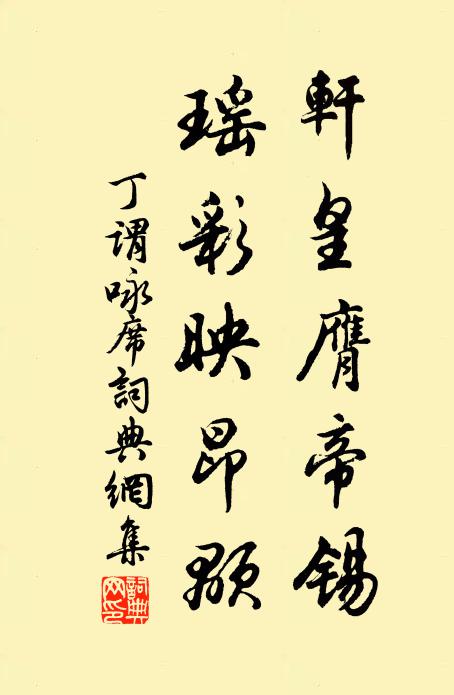 軒皇膺帝錫
瑶彩映昂顒
丁謂咏席詞典網集
詞典
网印